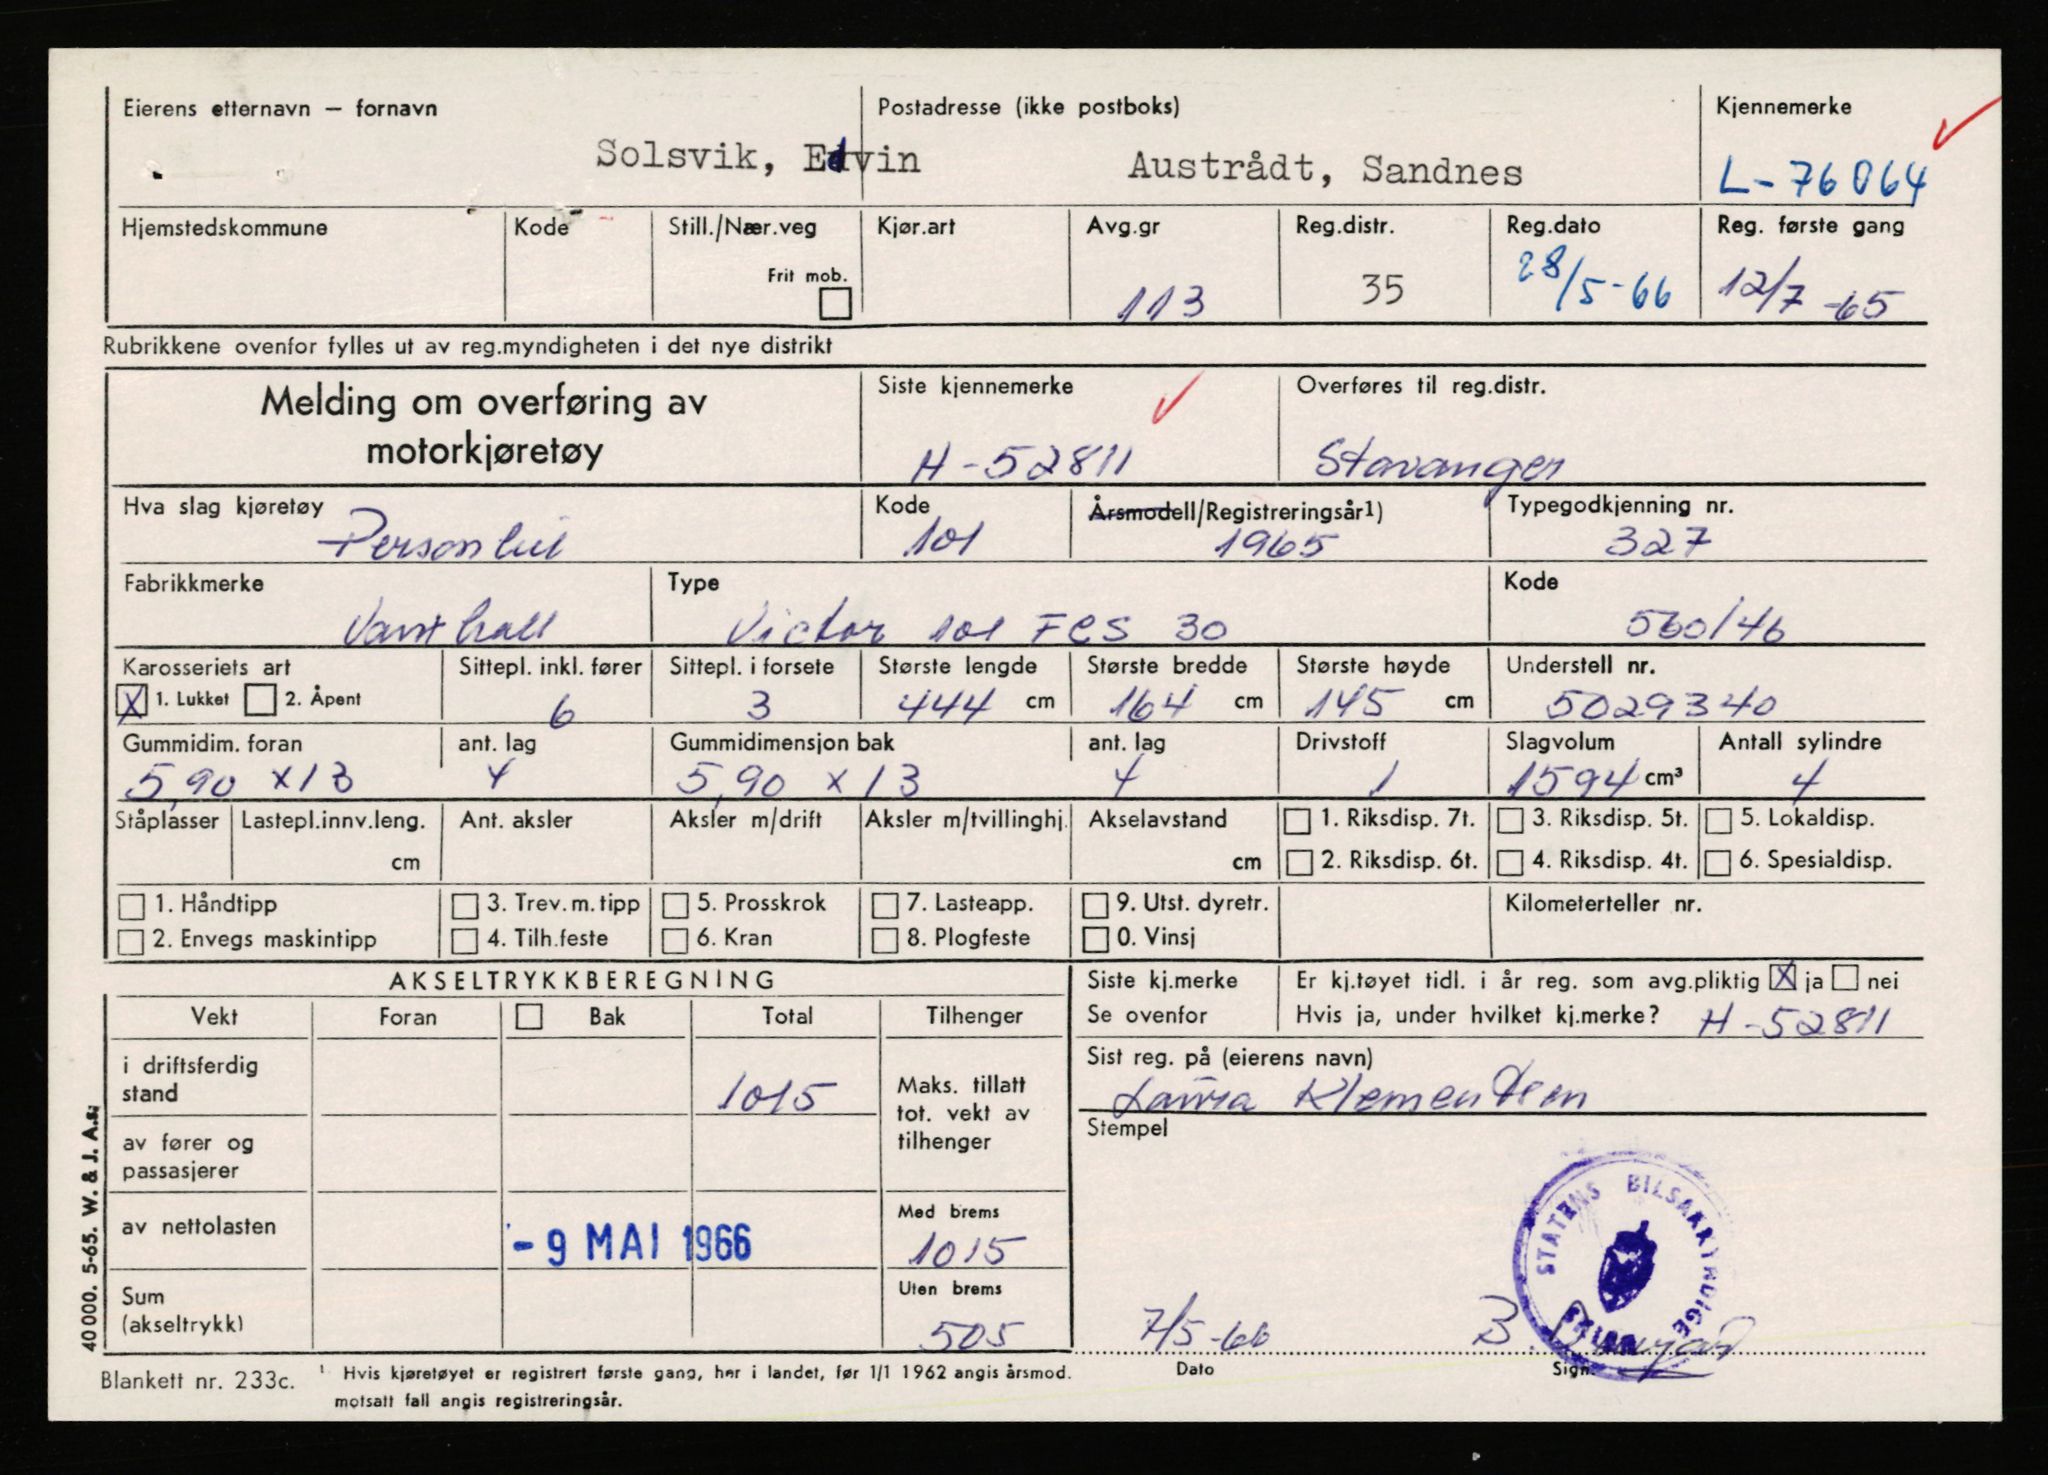 Eierens etternavn — fornavn
Postadresse (ikke postboks)
Kjennemerke
Solsvik, Edvin
Austrådt, Sandnes
L-76064
Hjemstedskommune
Kode
Still./Nær.veg
Frit mob.
Kjør.art
Avg.gr
113
Reg.distr.
35
Reg.dato
28/5-66
Reg. første gang
12/7-65
Rubrikkene ovenfor fylles ut av reg.myndigheten i det nye distrikt
Melding om overføring av
motorkjøretøy
Siste kjennemerke
H-52811
Overføres til reg.distr.
Stavanger
Hva slag kjøretøy
Personbil
Kode
101
Årsmodell/Registreringsår1)
1965
Typegodkjenning nr.
327
Fabrikkmerke
Vauxhall
Type
Victor 101 FCS 30
Kode
560/46
Karosseriets art
X 1. Lukket 2. Åpent
Sittepl. inkl. fører
6
Sittepl. i forsete
3
Største lengde
444 cm
Største bredde
164 cm
Største høyde
145 cm
Understell nr.
5029340
Gummidim. foran
5,90 x 13
ant. lag
4
Gummidimensjon bak
5,90 x 13
ant. lag
4
Drivstoff
1
Slagvolum
1594 cm³
Antall sylindre
4
Ståplasser
Lastepl.innv.leng.
cm
Ant. aksler
Aksler m/drift
Aksler m/tvillinghj.
Akselavstand
cm
1. Riksdisp. 7t. 3. Riksdisp. 5t. 5. Lokaldisp.
2. Riksdisp. 6t. 4. Riksdisp. 4t. 6. Spesialdisp.
1. Håndtipp 3. Trev. m. tipp 5. Prosskrok 7. Lasteapp. 9. Utst. dyretr.
2. Envegs maskintipp 4. Tilh.feste 6. Kran 8. Plogfeste 0. Vinsj
Kilometerteller nr.
AKSELTRYKKBEREGNING
Vekt Foran Bak Total Tilhenger
i driftsferdig
stand
1015
Maks. tillatt
tot. vekt av
tilhenger
av fører og
passasjerer
av nettolasten
-9 MAI 1966
Med brems
1015
Sum
(akseltrykk)
Uten brems
505
Siste kj.merke
Se ovenfor
Er kj.tøyet tidl. i år reg. som avg.pliktig X ja nei
Hvis ja, under hvilket kj.merke? H-52811
Sist reg. på (eierens navn)
Laura Klementsen
Stempel
STATENS BILSAKKYNDIGE
7/5-66
B.
Dato
Sign.
40 000. 5-65. W. & J. A.s.
Blankett nr. 233c.
1. Hvis kjøretøyet er registrert første gang, her i landet, før 1/1 1962 angis årsmod.
motsatt fall angis registreringsår.